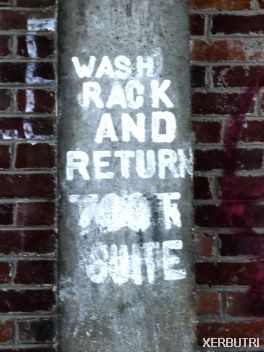 WASH
RACK
AND
RETURN
SUITE
XERBUTRI